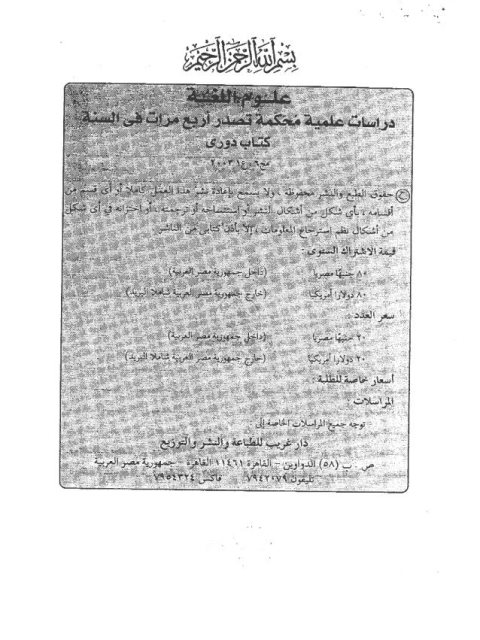 بسم الله الرحمن الرحيم
علوم اللغة
دراسات علمية محكمة تصدر أربع مرات فى السنة
كتاب دورى
مج ٦ ، ع ١ ، ٢٠٠٣
© حقوق الطبع والنشر محفوظة ، ولا يسمح بإعادة نشر هذا العمل كاملا أو أى قسم من
أقسامه ، بأى شكل من أشكال النشر أو إستنساخه أو ترجمته ، أو اختزانه فى أى شكل
من أشكال نظم إسترجاع المعلومات ، إلا بإذن كتابى من الناشر
قيمة الاشتراك السنوى :
٨٠ جنيها مصريا (داخل جمهورية مصر العربية)
٨٠ دولارا أمريكيا (خارج جمهورية مصر العربية شاملا البريد)
سعر العدد :
٢٠ جنيها مصريا (داخل جمهورية مصر العربية)
٢٠ دولارا أمريكيا (خارج جمهورية مصر العربية شاملا البريد)
أسعار خاصة للطلبة .
المراسلات :
توجه جميع المراسلات الخاصة إلى
دار غريب للطباعة والنشر والتوزيع
ص . ب (٥٨) الدواوين - القاهرة ١١٤٦١ القاهرة - جمهورية مصر العربية
تليفون ٧٩٤٢٠٧٩ فاكس ٧٩٥٤٣٢٤